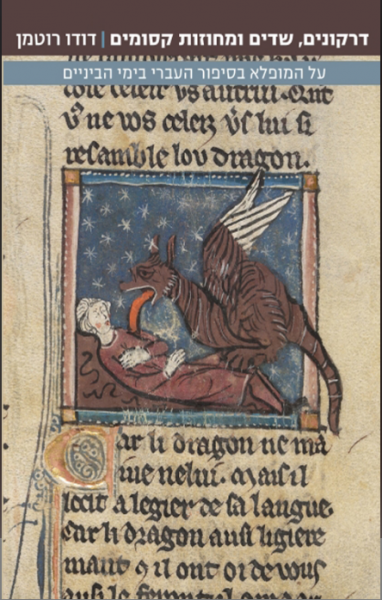 דרקונים, שדים ומחוזות קסומים | דודו רוטמן
על המופלא בסיפור העברי בימי הביניים
ne vos celeiz lui si
resamble lou dragon.
Car li dragon ne ma
iue nelui. Mais il
lecit a legier de sa langue
car li dragon ausi ligiere
mant q il ont oi de vous
ausi le